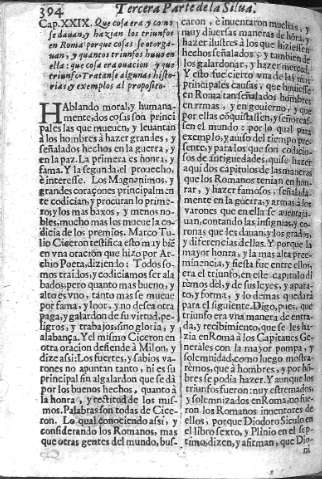 394
Tercera Parte de la Silua.
Cap. XXIX. Que cosa era y como
se dauan, y hazian los triunfos
en Roma: porque cosas se otorga-
uan, y quantos triunfos huuo en
ella: que cosa era ouacion y que
triunfo. Tratanse algunas histo-
rias y exemplos al proposito.
HAblando moral, y humana-
mente, dos cosas son princi
pales las que mueuen, y leuantan
à los hombres à hazer grandes, y
señalados hechos en la guerra, y
en la paz. La primera es honra, y
fama. Y la segunda el prouecho,
è interesse. Los Magnanimos, y
grandes coraçones principalmen
te codician, y procuran lo prime-
ro: y los mas baxos, y menos no-
bles, mucho mas los mueue la co-
dicia de los premios. Marco Tu-
lio Ciceron testifica esto muy biē
en vna oracion que hizo por Ar-
chio Poeta, diziendo: Todos so-
mos traidos, y codiciamos ser ala
bados: pero quanto mas bueno, y
alto es vno, tanto mas se mueue
por fama, y loor, y no desea otra
paga, y galardon de su virtud, pe-
ligros, y trabajos, sino gloria, y
alabança. Y el mismo Ciceron en
otra oracion defiende à Milon, y
dize assi: Los fuertes, y sabios va-
rones no apuntan tanto, ni es su
principal fin al galardon que se dà
por los buenos hechos, quanto à
la honra, y rectitud de los mis-
mos. Palabras son todas de Cice-
ron. Lo qual conociendo assi, y
considerando los Romanos, mas
que otras gentes del mundo, bus-
caron, è inuentaron muchas, y
muy diuersas maneras de honra,
hazer ilustres à los que hiziessen
hechos señalados: y tambien de
los galardonar, y hazer merced.
Y esto fue cierto vna de las
principales causas, que huuiesse
en Roma tan señalados hombres
en armas, y en gouierno, y que
por ellas conquistassen, y señoreas
sen el mundo: por lo qual para
exemplo, y auiso del tiempo pre-
sente, y para los que son codicio-
sos de antiguedades, quise hazer
aqui dos capitulos de las maneras
que los Romanos tenian en hon-
rar, y hazer famosos, señalada-
mente en la guerra, y armas à los
varones que en ella se auentaja-
uan, contando las insignias, y co-
ronas que les dauan, y los grados,
y diferencias dellas. Y porque la
mayor honra, y la mas alta pree-
minencia, y fiesta fue entre ellos,
era el triunfo, en este capitulo di
remos del, y de sus leyes, y apara-
to, forma, y lo demas quedarà
para el siguiente. Digo, pues, que
triunfo era vna manera de entra-
da, y recibimiento, que se les ha-
zia en Roma à los Capitanes Ge-
nerales con la mayor pompa, y
solemnidad, como luego mostra-
rèmos, que à hombres, y por hō-
bres se podia hazer. Y aunque los
triunfos fueron muy estremados,
y solemnizados en Roma, no fue-
ron los Romanos inuentores de
ellos, porque Diodoro Siculo en
el libro sexto, y Plinio en el sep-
timo, dizen, y afirman, que Dio-
ni